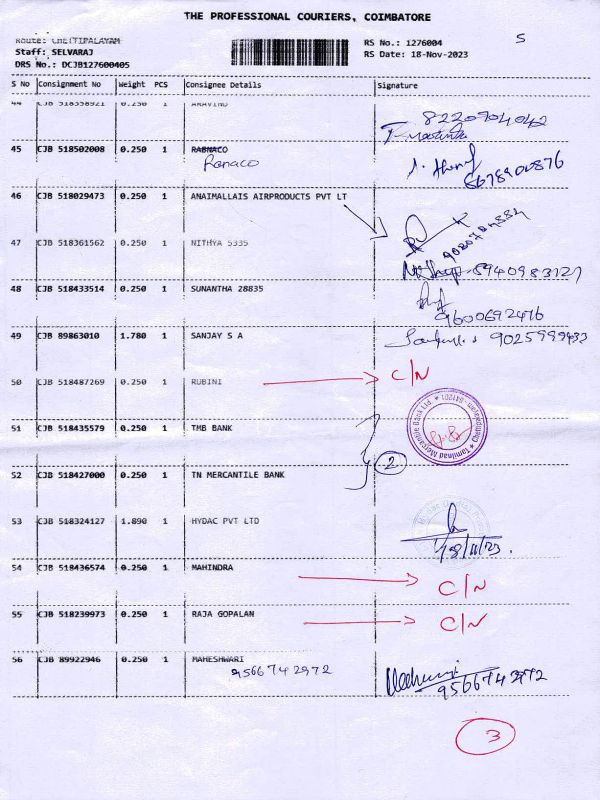 THE PROFESSIONAL COURIERS, COIMBATORE
Route: CHETTIPALAYAM
RS No.: 1276004
5
Staff: SELVARAJ
RS Date: 18-Nov-2023
DRS No.: DCJB127600405
S No Consignment No Weight PCS Consignee Details Signature
44 CJB 518358921 0.250 1 ARAVIND
8220904042
45 CJB 518502008 0.250 1 RABNACO
Ranaco
8678900876
46 CJB 518029473 0.250 1 ANAIMALLAIS AIRPRODUCTS PVT LT
47 CJB 518361562 0.250 1 NITHYA 5335
8940983127
48 CJB 518433514 0.250 1 SUNANTHA 28835
9600692476
49 CJB 89863010 1.780 1 SANJAY S A
9025999433
50 CJB 518487269 0.250 1 RUBINI C/N
51 CJB 518435579 0.250 1 TMB BANK
Tamilnad Mercantile Bank Ltd
2
52 CJB 518427000 0.250 1 TN MERCANTILE BANK
53 CJB 518324127 1.890 1 HYDAC PVT LTD
18/11/23.
54 CJB 518436574 0.250 1 MAHINDRA C/N
55 CJB 518239973 0.250 1 RAJA GOPALAN C/N
56 CJB 89922946 0.250 1 MAHESHWARI
9566742972
9566742972
3